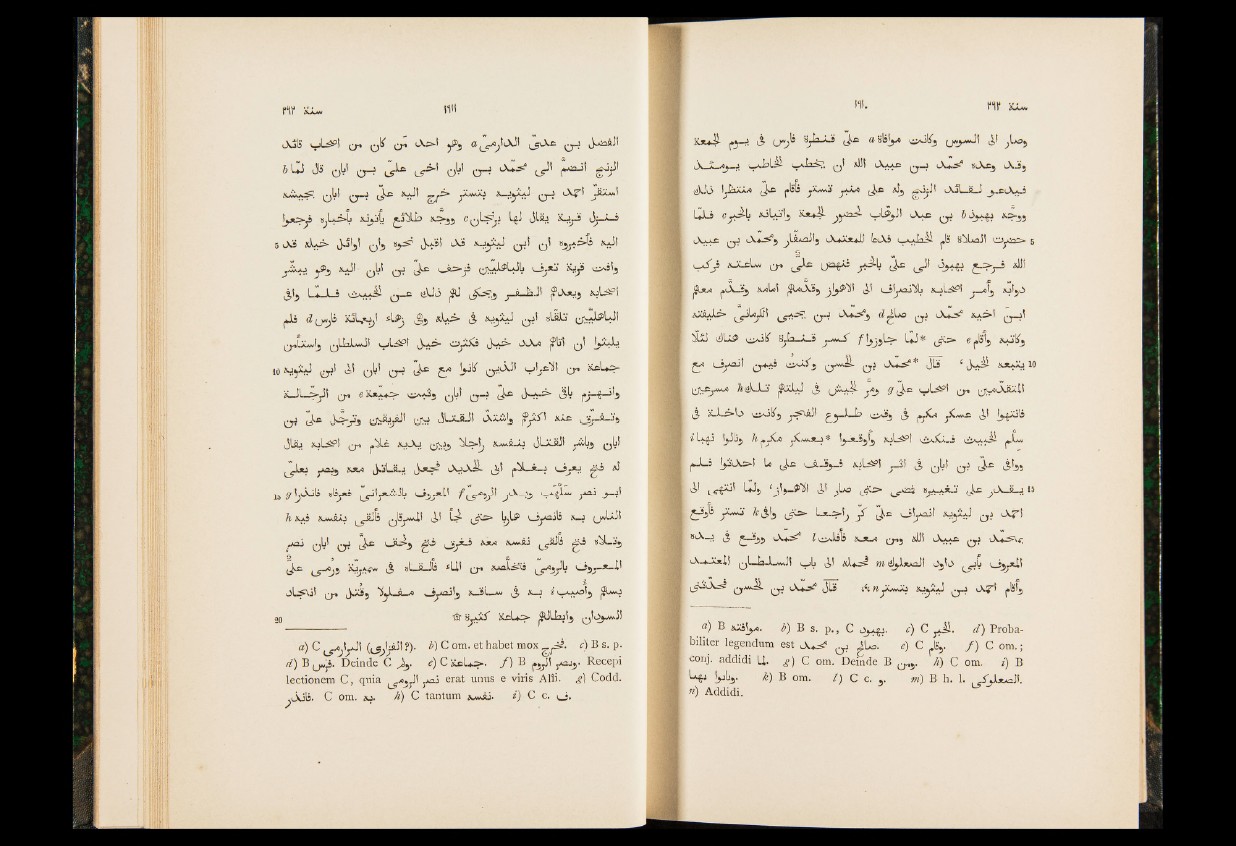 سنة ٢٦٢ ١٩١٠
وصار الى السوس وكانت موافاة a على قنطرة فارس في يوم الجمعة
وقد وعده محمّد بن عبيد الله ان يخطب الخاطب يومئذ
فيدعو لقائد الزنج وله على منبر تستر فأقام علىّ منتظرا ذلك
ووجّه بهبوذ b بن عبد الوهّاب لحضور الجمعة واتيانه بالخبر c فلمّا
5 حضرت الصلاة قام الخطيب فدعا للمعتمد والصفّار ومحمّد بن عبيد
الله فرجع بهبوذ الى علىّ بالخبر فنهض علىّ من ساعته فركب
دوابّه وأمر اصحابه بالانصراف الى الاهواز وقدّمهم امامه وقدّم معهم
ابن اخيه محمّد بن صالح d ومحمّد بن يحيى الكرمانىّ خليفته
وكاتبه وأقام e حتى *لمّا جاوزوا f كسر قنطرة كانت هناك لئلّا
10 يتبعه الخيل ، قال *محمّد بن الحسن وكنتُ فيمن انصرف مع
المتقدّمين من اصحاب علىّ g ومرّ الجيش في ليلتهم تلك h مسرعين
فانتهوا الى عسكر مكرم في وقت طلوع الفجر وكانت داخلة في
سلم الخبيث فنكث اصحابه وأوقعوا *بعسكر مكرم h ونالوا نهبا i
ووافى علىّ بن ابان في اثر اصحابه فوقف على ما احدثوا فلم
15 يقدر على تغييره فمضى حتى صار الى الاهواز ، ولمّا انتهى الى
احمد بن ليثويه انصراف علىّ كرّ راجعا حتى وافى k تستر فأوقع
بمحمّد بن عبيد الله ومن معه فأفلت l محمّد ووقع في يده
المعروف بأبي داود الصعلوك m فحمله الى باب السلطان المعتمد
وأقام احمد بن ليثويه بتستر n ، قال محمّد بن الحسن فحدّثني
a) B موافته. b) B s. p., C بهبود. c) C الخبر. d) Proba-
biliter legendum est محمد بن صالح. e) C وقام. f) C om.;
conj. addidi لما. g) C om. Deinde B ومن. h) C om. i) B
وبابوا بهما. k) B om. l) C c. و. m) B h. l. الصعلوكى.
n) Addidi.
سنة ٢٦٢ ١٩١١
الفضل بن عدىّ الدارمىّ a وهو احد من كان من اصحاب قائد
الزنج انضمّ الى محمّد بن ابان اخى علىّ بن ابان قال لمّا b
استقرّ احمد بن ليثويه بتستر خرج اليه علىّ بن ابان بجيشه
فنزل قرية يقال لها برنجان c ووجّه طلائع يأتونه بأخباره فرجعوا
5 اليه فأخبروه ان ابن ليثويه قد اقبل نحوه وان اوائل خيله قد
وافت قرية تعرف بالباهليّين فزحف علىّ بن ابان اليه وهو يبشّر
اصحابه ويعدهم الظفر ويحكى لهم ذلك عن الخبيث فلمّا وافى
الباهليّين تلقّاه ابن ليثويه في خيله وفى زهاء اربعمائة فارس d فلم
يلبثوا ان اتاهم مدد خيل فكثرت خيل اصحاب السلطان واستأمن
10 جماعة من الاعراب الذين كانوا مع علىّ بن ابان الى ابن ليثويه
وانهزم باقى خيل علىّ بن ابان وثبت جميعة e من الرجّالة
وتفرّق عنه اكثرهم واشتدّ القتال بين الفريقين وترجّل علىّ بن
ابان وباشر القتال بنفسه راجلا وبين يديه غلام من اصحابه يقال
له فتح يعرف بغلام ابى الحديد فجعل يقاتل معه وبصر بعلىّ
15 ابو نصر سلهب وبدر الرومىّ f المعروف بالشعرانىّ فعرفاه فانذرا g
الناس به فانصرف هاربا حتى لجأ الى المسرقان فألقى بنفسه فيه h
وتلاه فتح فألقى نفسه معه فغرق فتح ولحق علىّ بن ابان نصر
المعروف بالرومىّ فتخلّصه من الماء فألقاه في سميريّة ورُمى علىّ
بسهم وأصيب i به في ساقه وانصرف مفلولا وقُتل من انجاد
20 السودان وابطالهم جماعة كثيرة ۞
a) C المرارمى (الفزارى?). b) C om. et habet mox فخرج. c) B s. p.
d) B فرس. Deinde C ولم. e) C جماعة. f) B ونصر الروم. Recepi
lectionem C, quia نصر الرومى erat unus e viris Alîi. g) Codd.
فانذر. C om. به. h) C tantum نفسه. i) C c. ف.